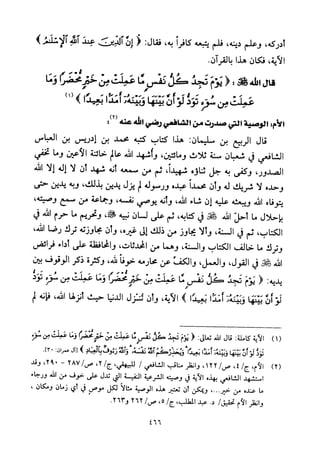 أدركه، وعلم دينه، فلم يتبعه كافراً به، فقال: ﴿ إِنَّ ٱلدِّينَ عِندَ ٱللَّهِ ٱلْإِسْلَٰمُ ﴾
الآية، فكان هذا بالقرآن.
قال الله ﷻ: ﴿ يَوْمَ تَجِدُ كُلُّ نَفْسٍ مَّا عَمِلَتْ مِنْ خَيْرٍ مُّحْضَرًا وَمَا
عَمِلَتْ مِن سُوٓءٍ تَوَدُّ لَوْ أَنَّ بَيْنَهَا وَبَيْنَهُۥٓ أَمَدًۢا بَعِيدًا ﴾ (١)
الأم: الوصية التي صدرت من الشافعي رضي الله عنه (٢):
قال الربيع بن سليمان: هذا كتاب كتبه محمد بن إدريس بن العباس
الشافعي في شعبان سنة ثلاث ومائتين، وأشهد الله عالم خائنة الأعين وما تخفي
الصدور، وكفى به جل ثناؤه شهيداً، ثم من سمعه أنه شهد أن لا إله إلا الله
وحده لا شريك له وأن محمداً عبده ورسوله لم يزل يدين بذلك، وبه يدين حتى
يتوفاه الله ويبعثه عليه إن شاء الله، وأنه يوصي نفسه، وجماعة من سمع وصيته،
بإحلال ما أحل الله ﷻ في كتابه، ثم على لسان نبيه ﷺ، وتحريم ما حرم الله في
الكتاب، ثم في السنة، وألا يجاوز من ذلك إلى غيره، وأن مجاوزته ترك رضا الله،
وترك ما خالف الكتاب والسنة، وهما من المحدثات، والمحافظة على أداء فرائض
الله ﷻ في القول، والعمل، والكف عن محارمه خوفاً لله، وكثرة ذكر الوقوف بين
يديه: ﴿ يَوْمَ تَجِدُ كُلُّ نَفْسٍ مَّا عَمِلَتْ مِنْ خَيْرٍ مُّحْضَرًا وَمَا عَمِلَتْ مِن سُوٓءٍ تَوَدُّ
لَوْ أَنَّ بَيْنَهَا وَبَيْنَهُۥٓ أَمَدًۢا بَعِيدًا ﴾ الآية، وأن تُنزل الدنيا حيث أنزلها الله، فإنه لم
(١) الآية كاملة: قال الله تعالى: ﴿ يَوْمَ تَجِدُ كُلُّ نَفْسٍ مَّا عَمِلَتْ مِنْ خَيْرٍ مُّحْضَرًا وَمَا عَمِلَتْ مِن سُوٓءٍ
تَوَدُّ لَوْ أَنَّ بَيْنَهَا وَبَيْنَهُۥٓ أَمَدًۢا بَعِيدًا وَيُحَذِّرُكُمُ ٱللَّهُ نَفْسَهُۥ وَٱللَّهُ رَءُوفٌۢ بِٱلْعِبَادِ ﴾ [آل عمران: ٣٠].
(٢) الأم، ج/٤، ص/١٢٢، وانظر مناقب الشافعي / للبيهقي، ج/٢، ص/٢٨٧ - ٢٩٠، وقد
استشهد الشافعي بهذه الآية في وصيته الشرعية النفيسة التي تدل على خوف من الله ورجاء
ما عنده من خير، ...، ويمكن أن تعتبر هذه الوصية مثالاً لكل موصٍ في أي زمان ومكان،
وانظر الأم تحقيق/ د. عبد المطلب، ج/٥، ص/٢٦٢ و٢٦٣.
٤٦٦